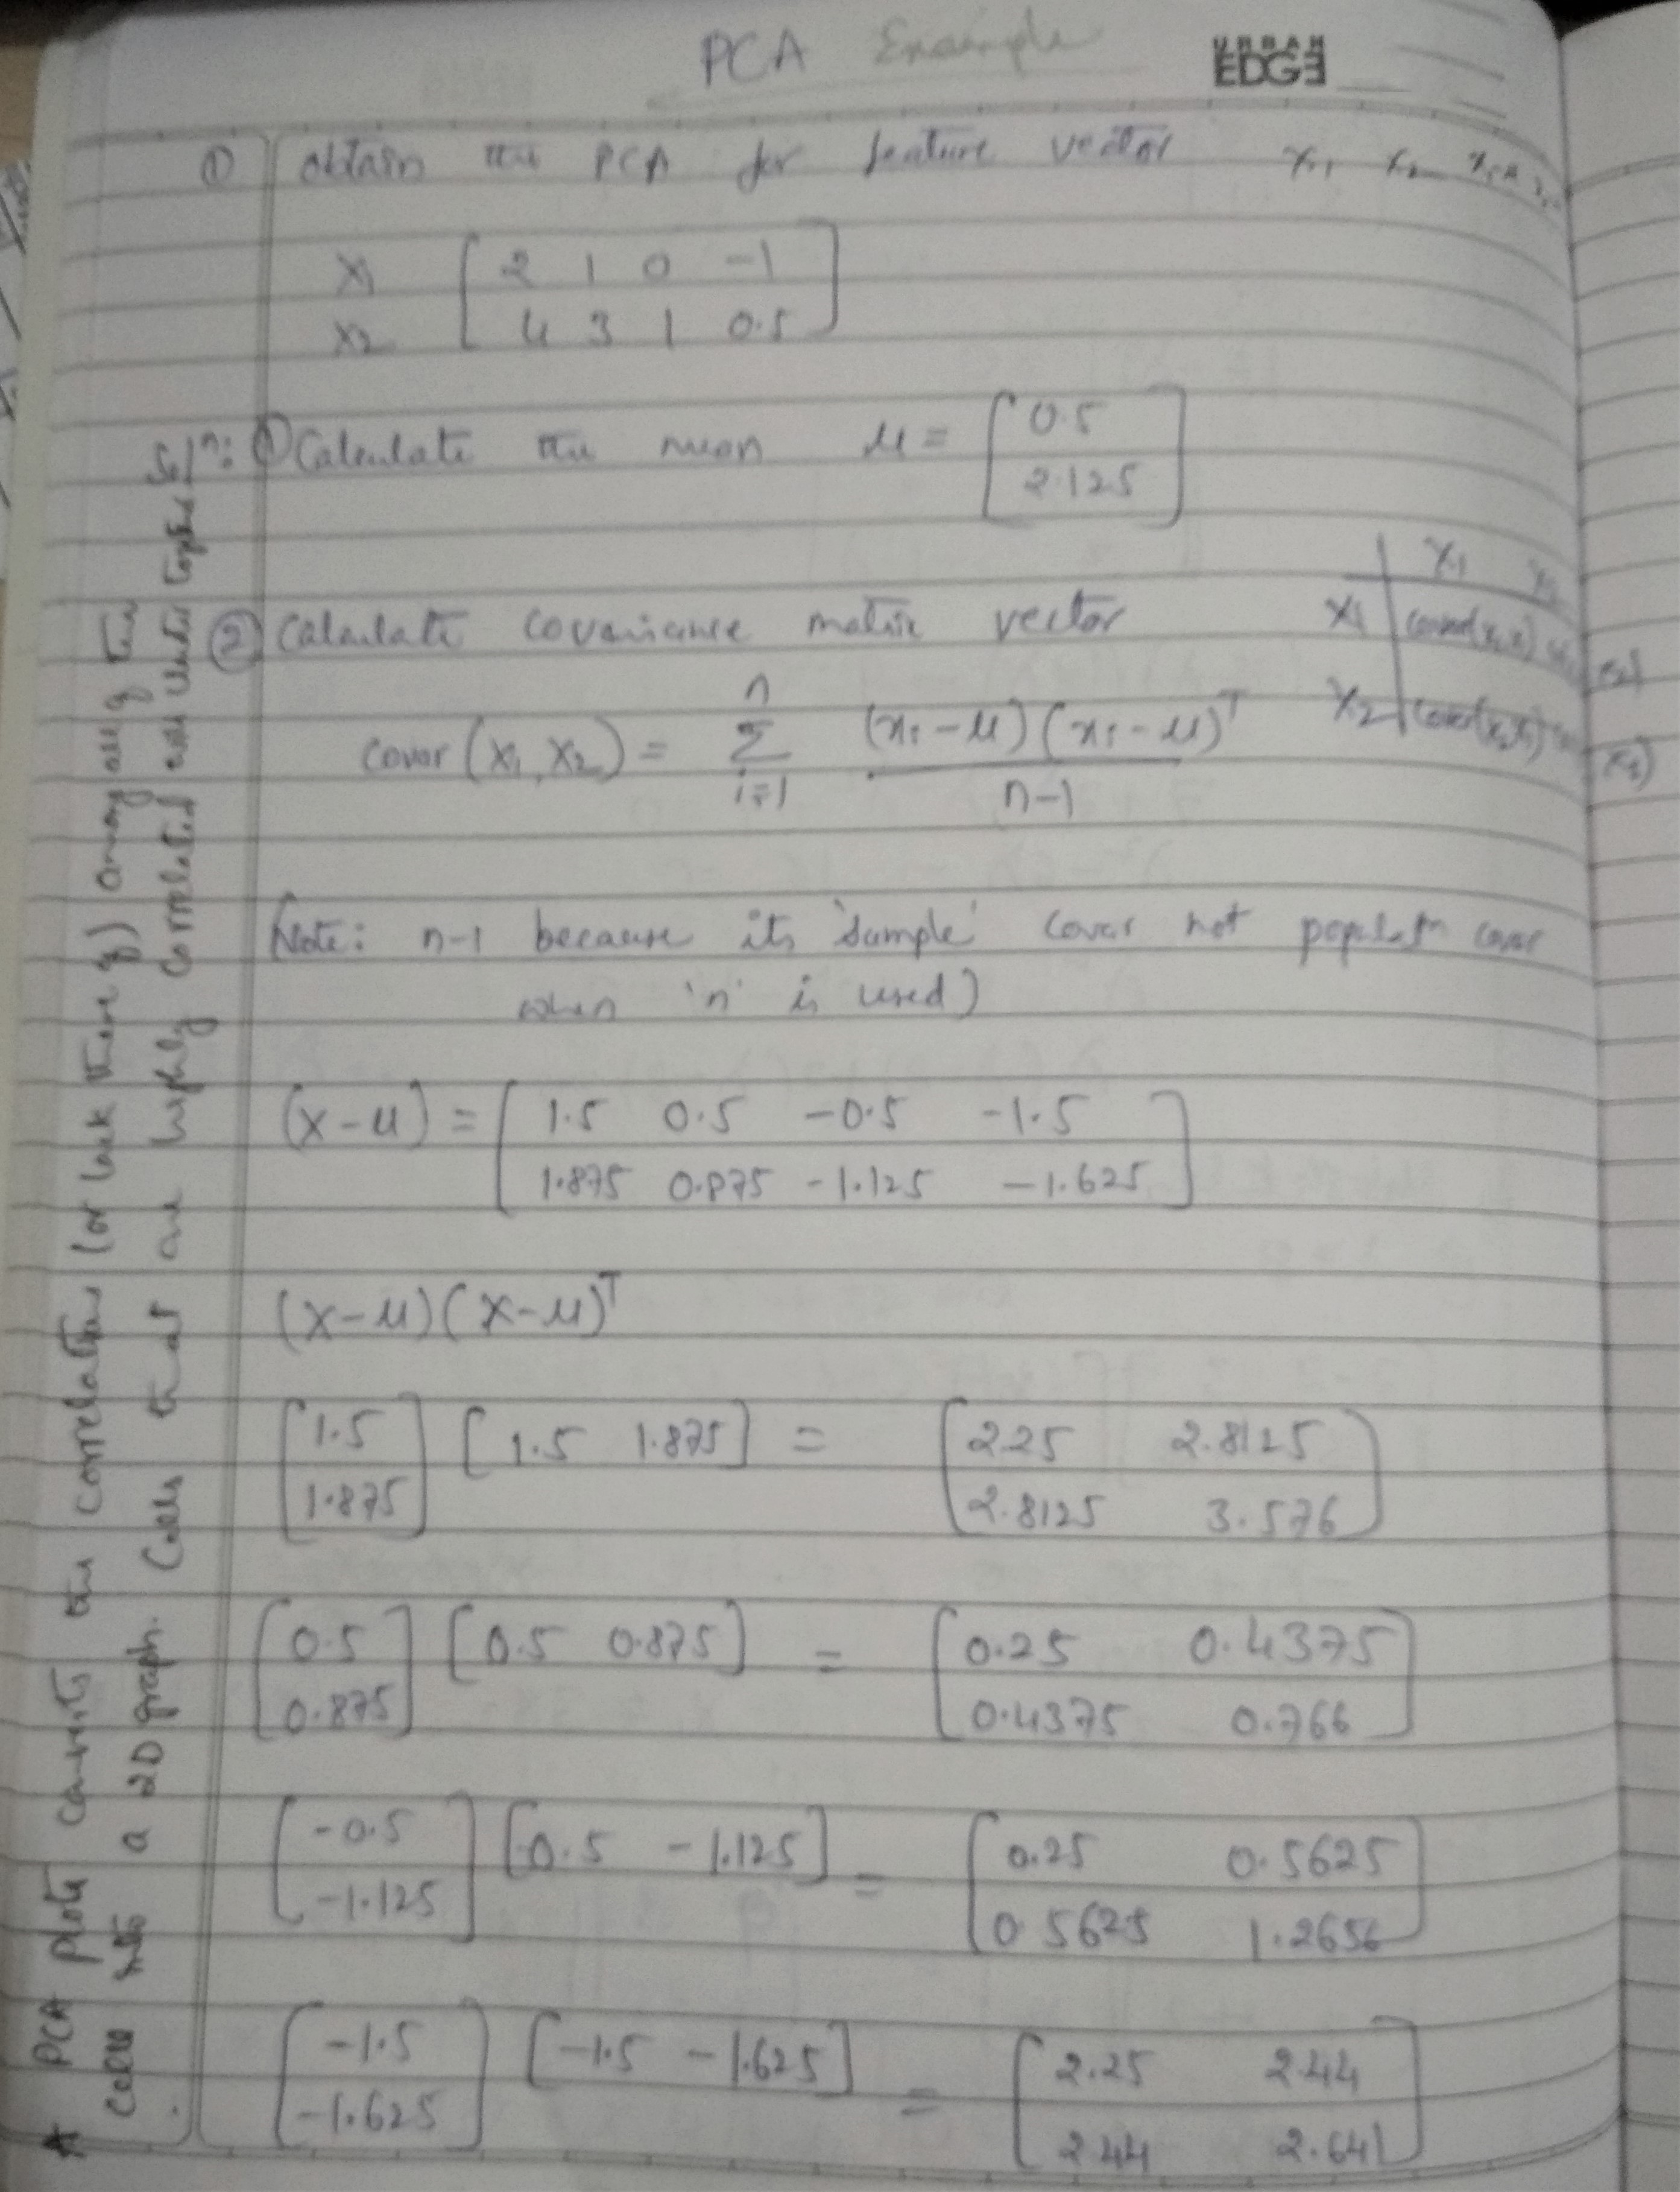 PCA Example
URBAN
EDGE
① obtain the PCA for feature vector x1 x2
x1 [ 2 1 0 -1
x2 4 3 1 0.5 ]
Soln: ① Calculate the mean μ = [ 0.5
2.125 ]
② Calculate covariance matrix vector
x1
x1 covar(x1,x1)
x2
covar (x1, x2) = n Σ i=1 (xi - μ) (xi - μ)T / n-1
Note: n-1 because its 'sample' covar not populatn covar
when 'n' is used)
(x-μ) = [ 1.5 0.5 -0.5 -1.5
1.875 0.875 -1.125 -1.625 ]
(x-μ) (x-μ)T
[ 1.5 1.875 ] [ 1.5 1.875 ] = [ 2.25 2.8125
2.8125 3.576 ]
[ 0.5 0.875 ] [ 0.5 0.875 ] = [ 0.25 0.4375
0.4375 0.766 ]
[ -0.5 -1.125 ] [ -0.5 -1.125 ] = [ 0.25 0.5625
0.5625 1.2656 ]
[ -1.5 -1.625 ] [ -1.5 -1.625 ] = [ 2.25 2.44
2.44 2.641 ]
* PCA plots converts the correlations (or lack there of) among all of the
cells into a 2D graph. Cells that are highly correlated will cluster together